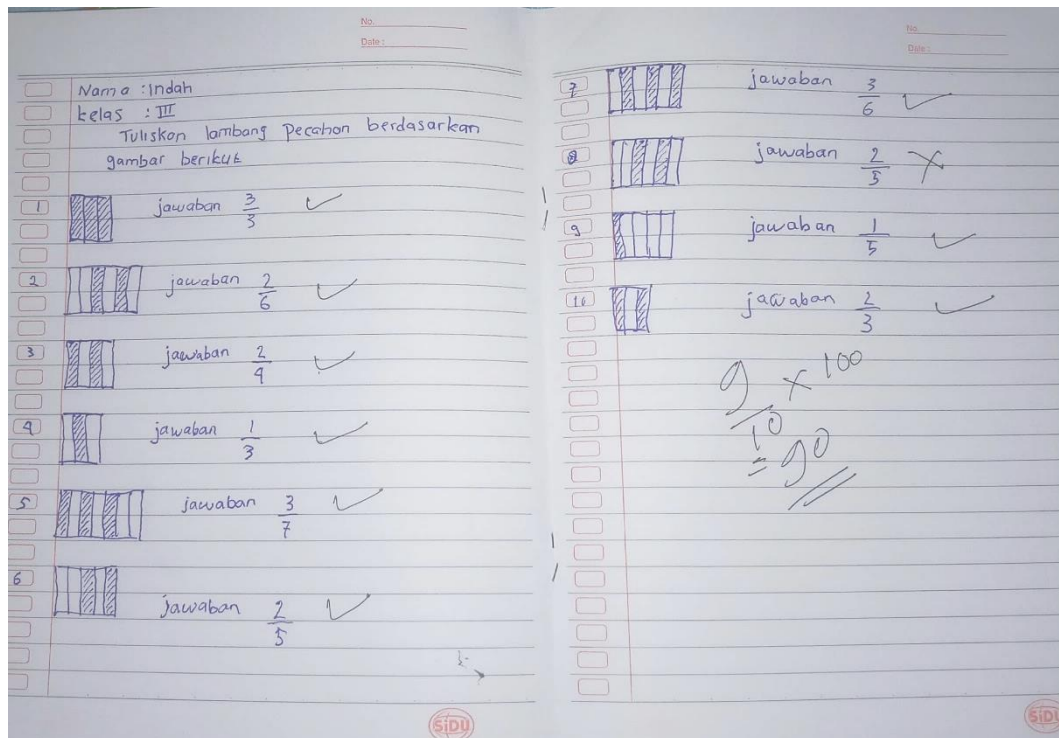 No.
Date :
Nama : Indah
kelas : III
Tuliskan lambang Pecahan berdasarkan
gambar berikut
1 jawaban 3/3 ✓
2 jawaban 2/6 ✓
3 jawaban 2/4 ✓
4 jawaban 1/3 ✓
5 jawaban 3/7 ✓
6 jawaban 2/5 ✓
SiDU
No.
Date :
7 jawaban 3/6 ✓
8 jawaban 2/5 ✗
9 jawaban 1/5 ✓
10 jawaban 2/3 ✓
9/10 x 100
= 90
SiDU